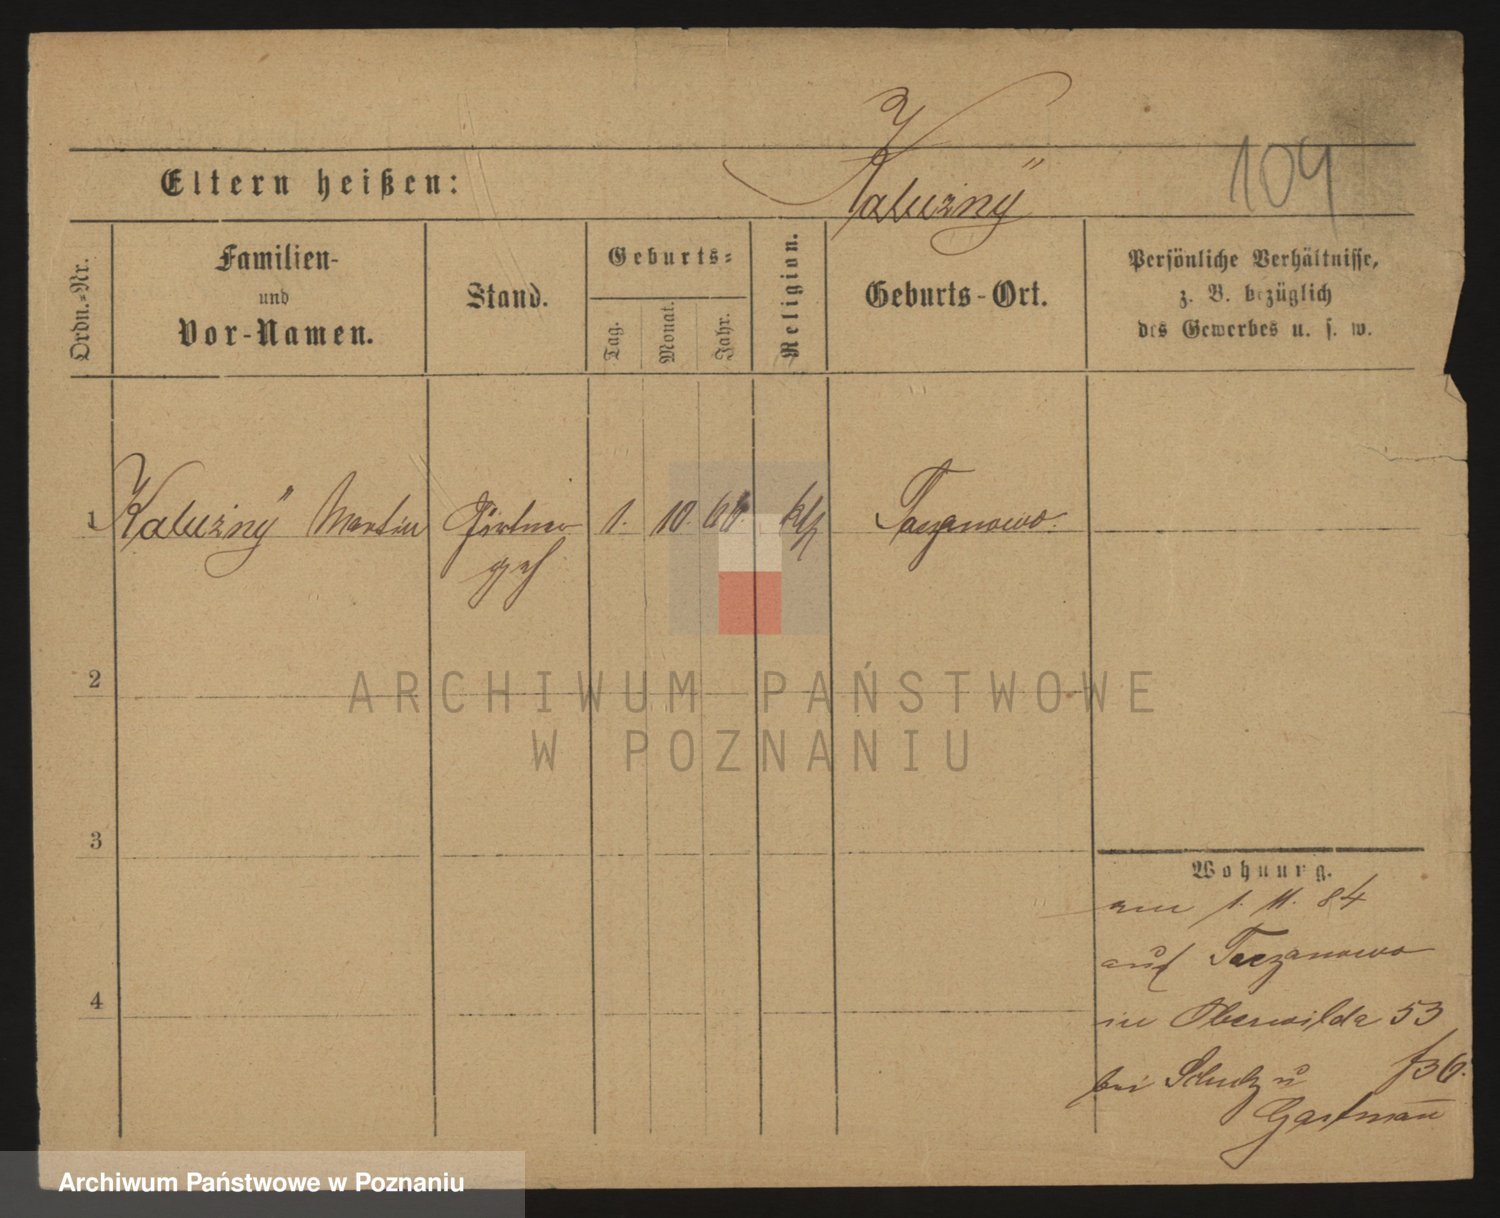 Kaluzny
104
Eltern heißen:
Ordn.-Nr.
Familien-
und
Vor-Namen.
Stand.
Geburts-
Tag.
Monat.
Jahr.
Religion.
Geburts-Ort.
Persönliche Verhältnisse,
z. B. bezüglich
des Gewerbes u. s. w.
1 Kaluzny Martin Gärtner 1. 10. kth Taczanowo.
2
3
4
Wohnung.
am 1. 11. 84
aus Taczanowo
in Oberwilda 53
bei Schulz u
Gartmann
ARCHIWUM PAŃSTWOWE
W POZNANIU
Archiwum Państwowe w Poznaniu